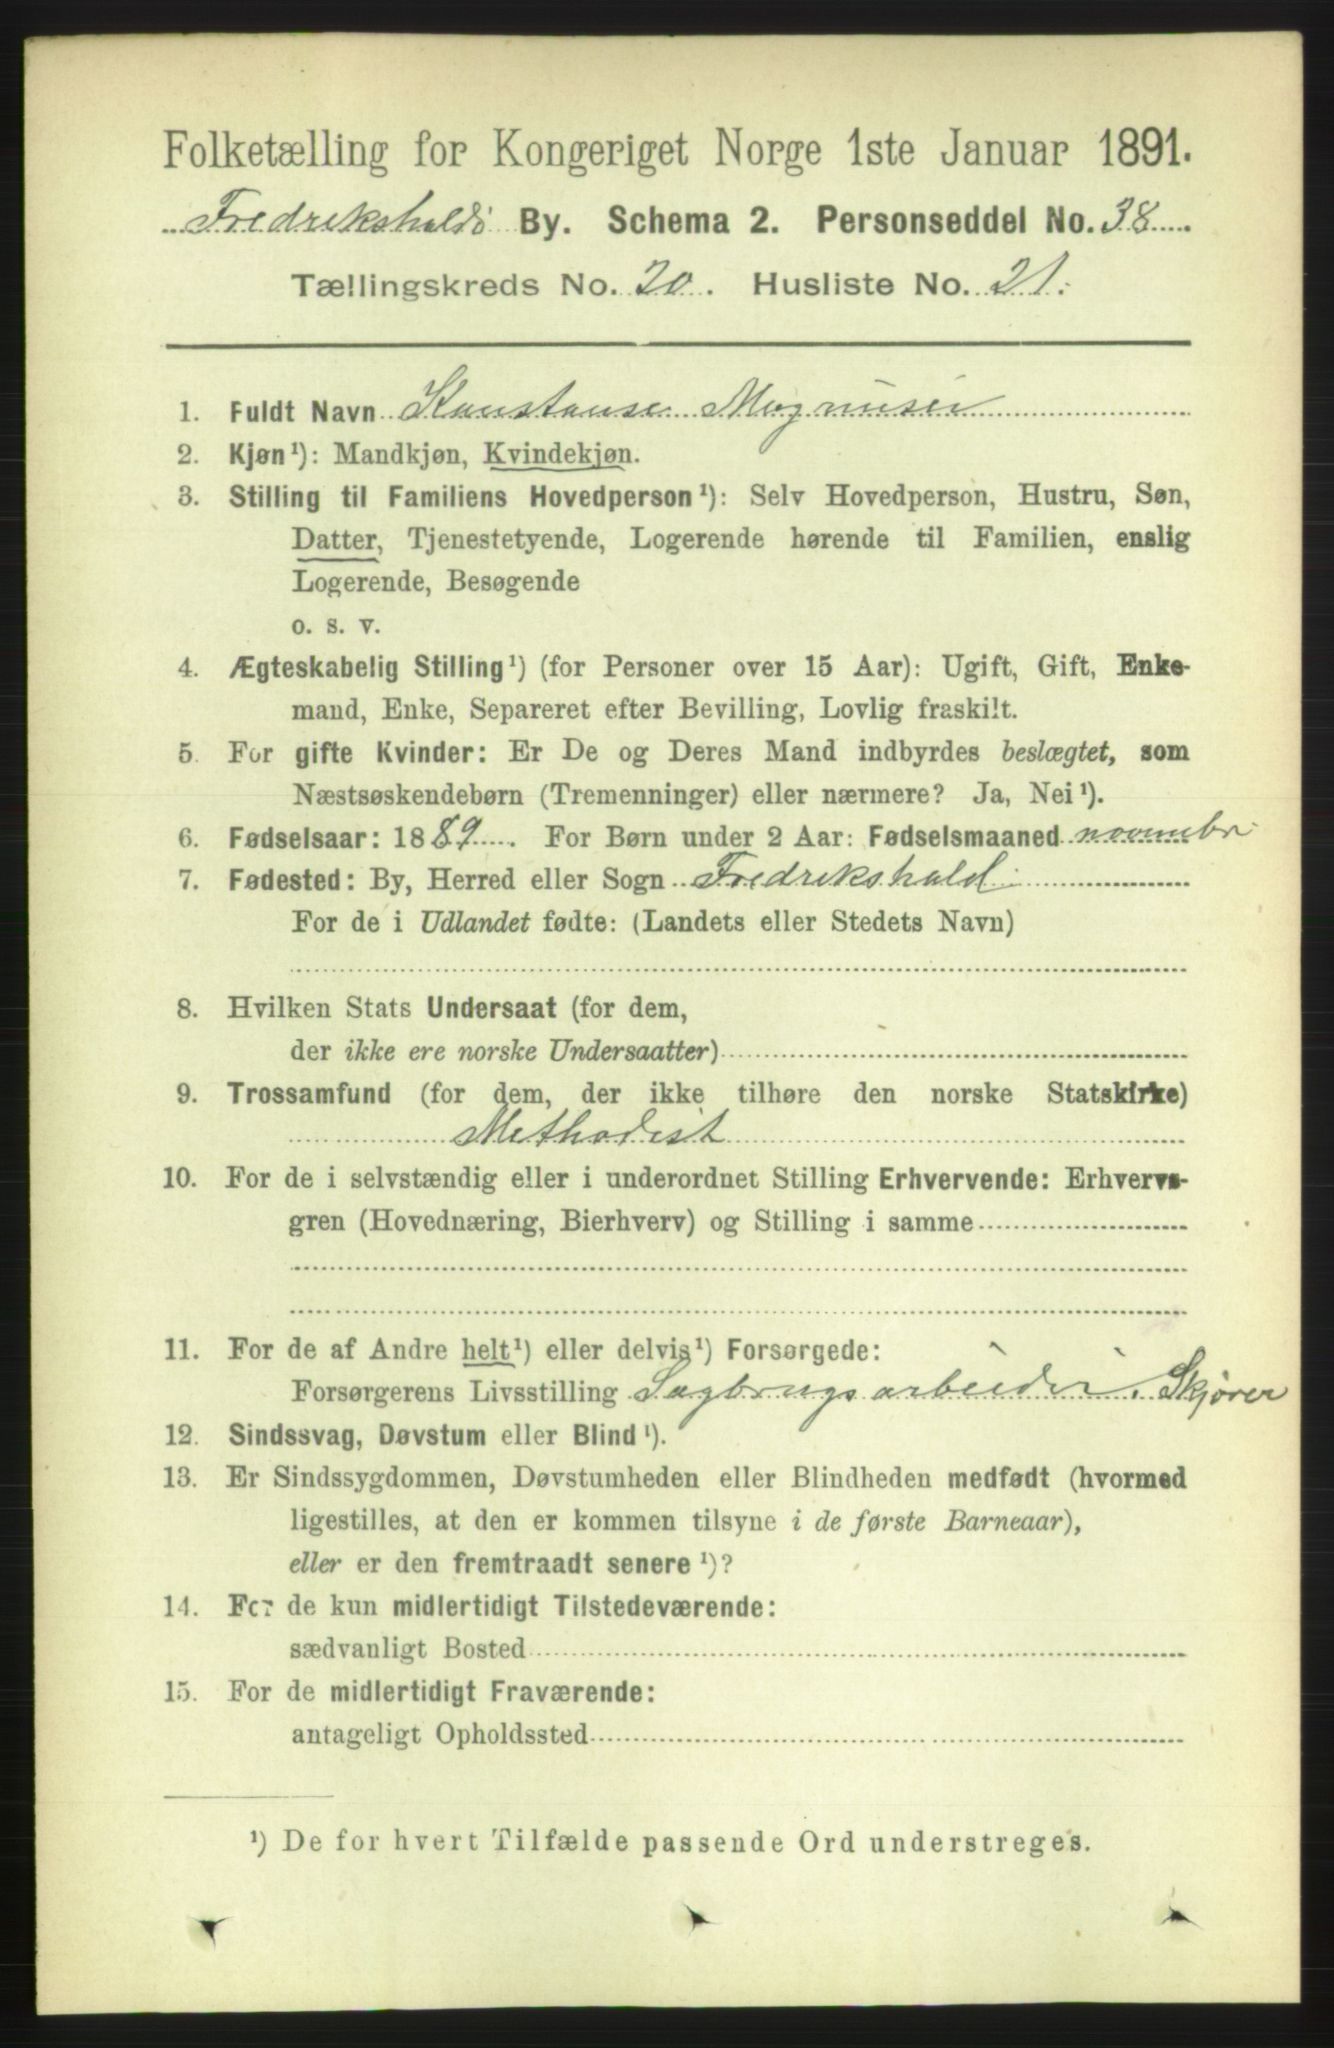 Folketælling for Kongeriget Norge 1ste Januar 1891.
Fredrikshalds By. Schema 2. Personseddel No. 38
Tællingskreds No. 20. Husliste No. 21.
1. Fuldt Navn Konstanse Magnusen
2. Kjøn ¹): Mandkjøn, Kvindekjøn.
3. Stilling til Familiens Hovedperson ¹): Selv Hovedperson, Hustru, Søn,
Datter, Tjenestetyende, Logerende hørende til Familien, enslig
Logerende, Besøgende
o. s. v.
4. Ægteskabelig Stilling ¹) (for Personer over 15 Aar): Ugift, Gift, Enke-
mand, Enke, Separeret efter Bevilling, Lovlig fraskilt.
5. For gifte Kvinder: Er De og Deres Mand indbyrdes beslægtet, som
Næstsøskendebørn (Tremenninger) eller nærmere? Ja, Nei ¹).
6. Fødselsaar: 1889. For Børn under 2 Aar: Fødselsmaaned november
7. Fødested: By, Herred eller Sogn Fredrikshald
For de i Udlandet fødte: (Landets eller Stedets Navn)
8. Hvilken Stats Undersaat (for dem,
der ikke ere norske Undersaatter)
9. Trossamfund (for dem, der ikke tilhøre den norske Statskirke)
Methodist
10. For de i selvstændig eller i underordnet Stilling Erhvervende: Erhvervs-
gren (Hovednæring, Bierhverv) og Stilling i samme
11. For de af Andre helt ¹) eller delvis ¹) Forsørgede:
Forsørgerens Livsstilling Sagbrugsarbeider. Skjører
12. Sindssvag, Døvstum eller Blind ¹).
13. Er Sindssygdommen, Døvstumheden eller Blindheden medfødt (hvormed
ligestilles, at den er kommen tilsyne i de første Barneaar),
eller er den fremtraadt senere ¹)?
14. For de kun midlertidigt Tilstedeværende:
sædvanligt Bosted
15. For de midlertidigt Fraværende:
antageligt Opholdssted
¹) De for hvert Tilfælde passende Ord understreges.